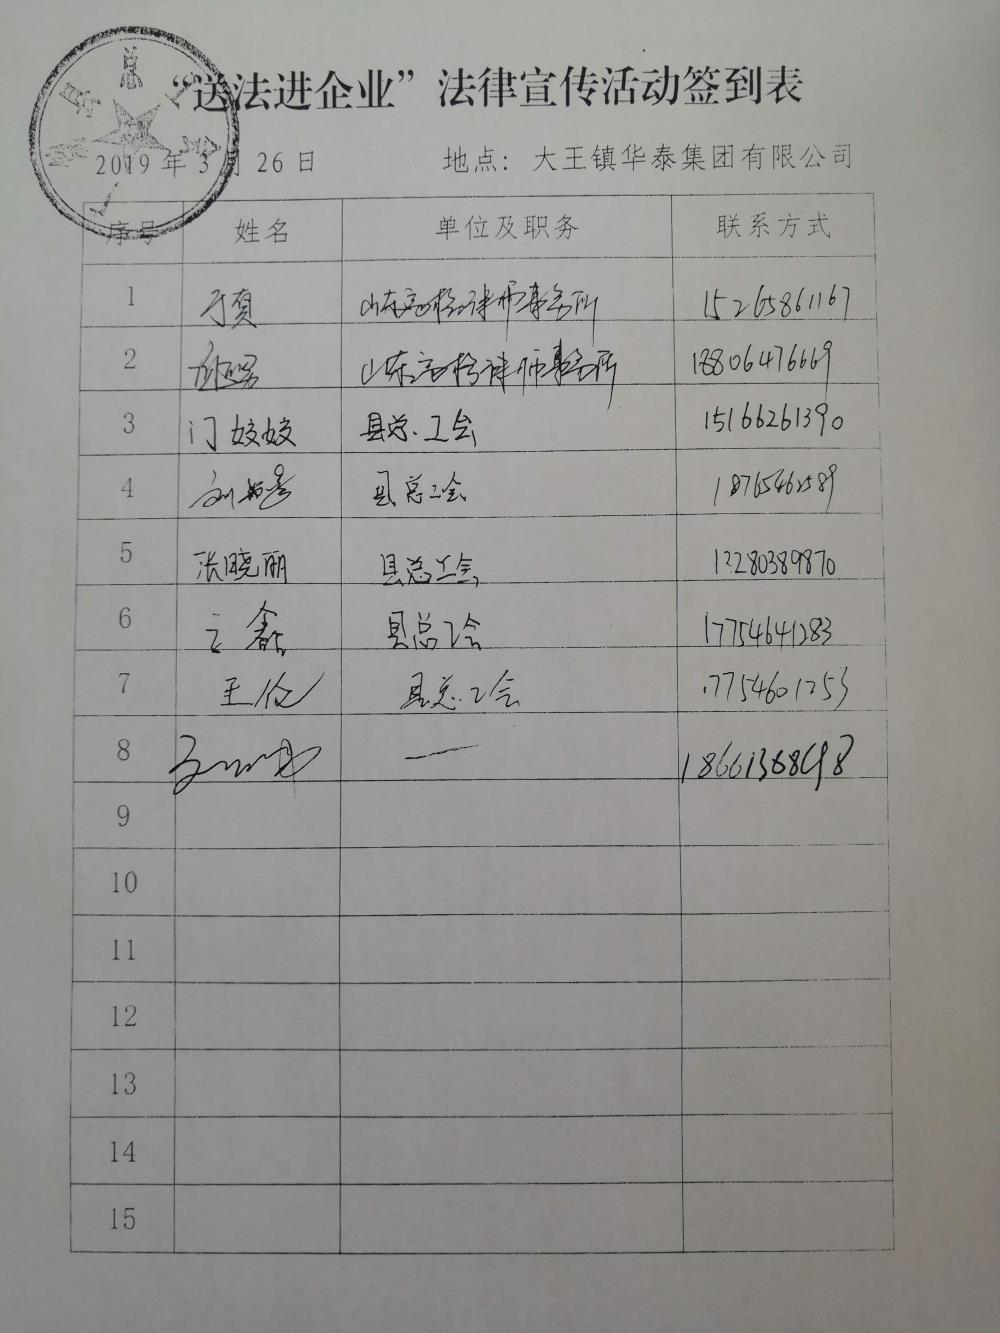 总
县 工
会
“送法进企业”法律宣传活动签到表
2019年3月26日 地点：大王镇华泰集团有限公司
序号 姓名 单位及职务 联系方式
1 于 15265861167
2 山东 律师事务所 18806476669
3 门姣姣 县总工会 15166261390
4 刘 县总工会 18765462589
5 张晓丽 县总工会 13280389870
6 县总工会 17754641283
7 王 县总工会 17754601253
8 —
9
10
11
12
13
14
15